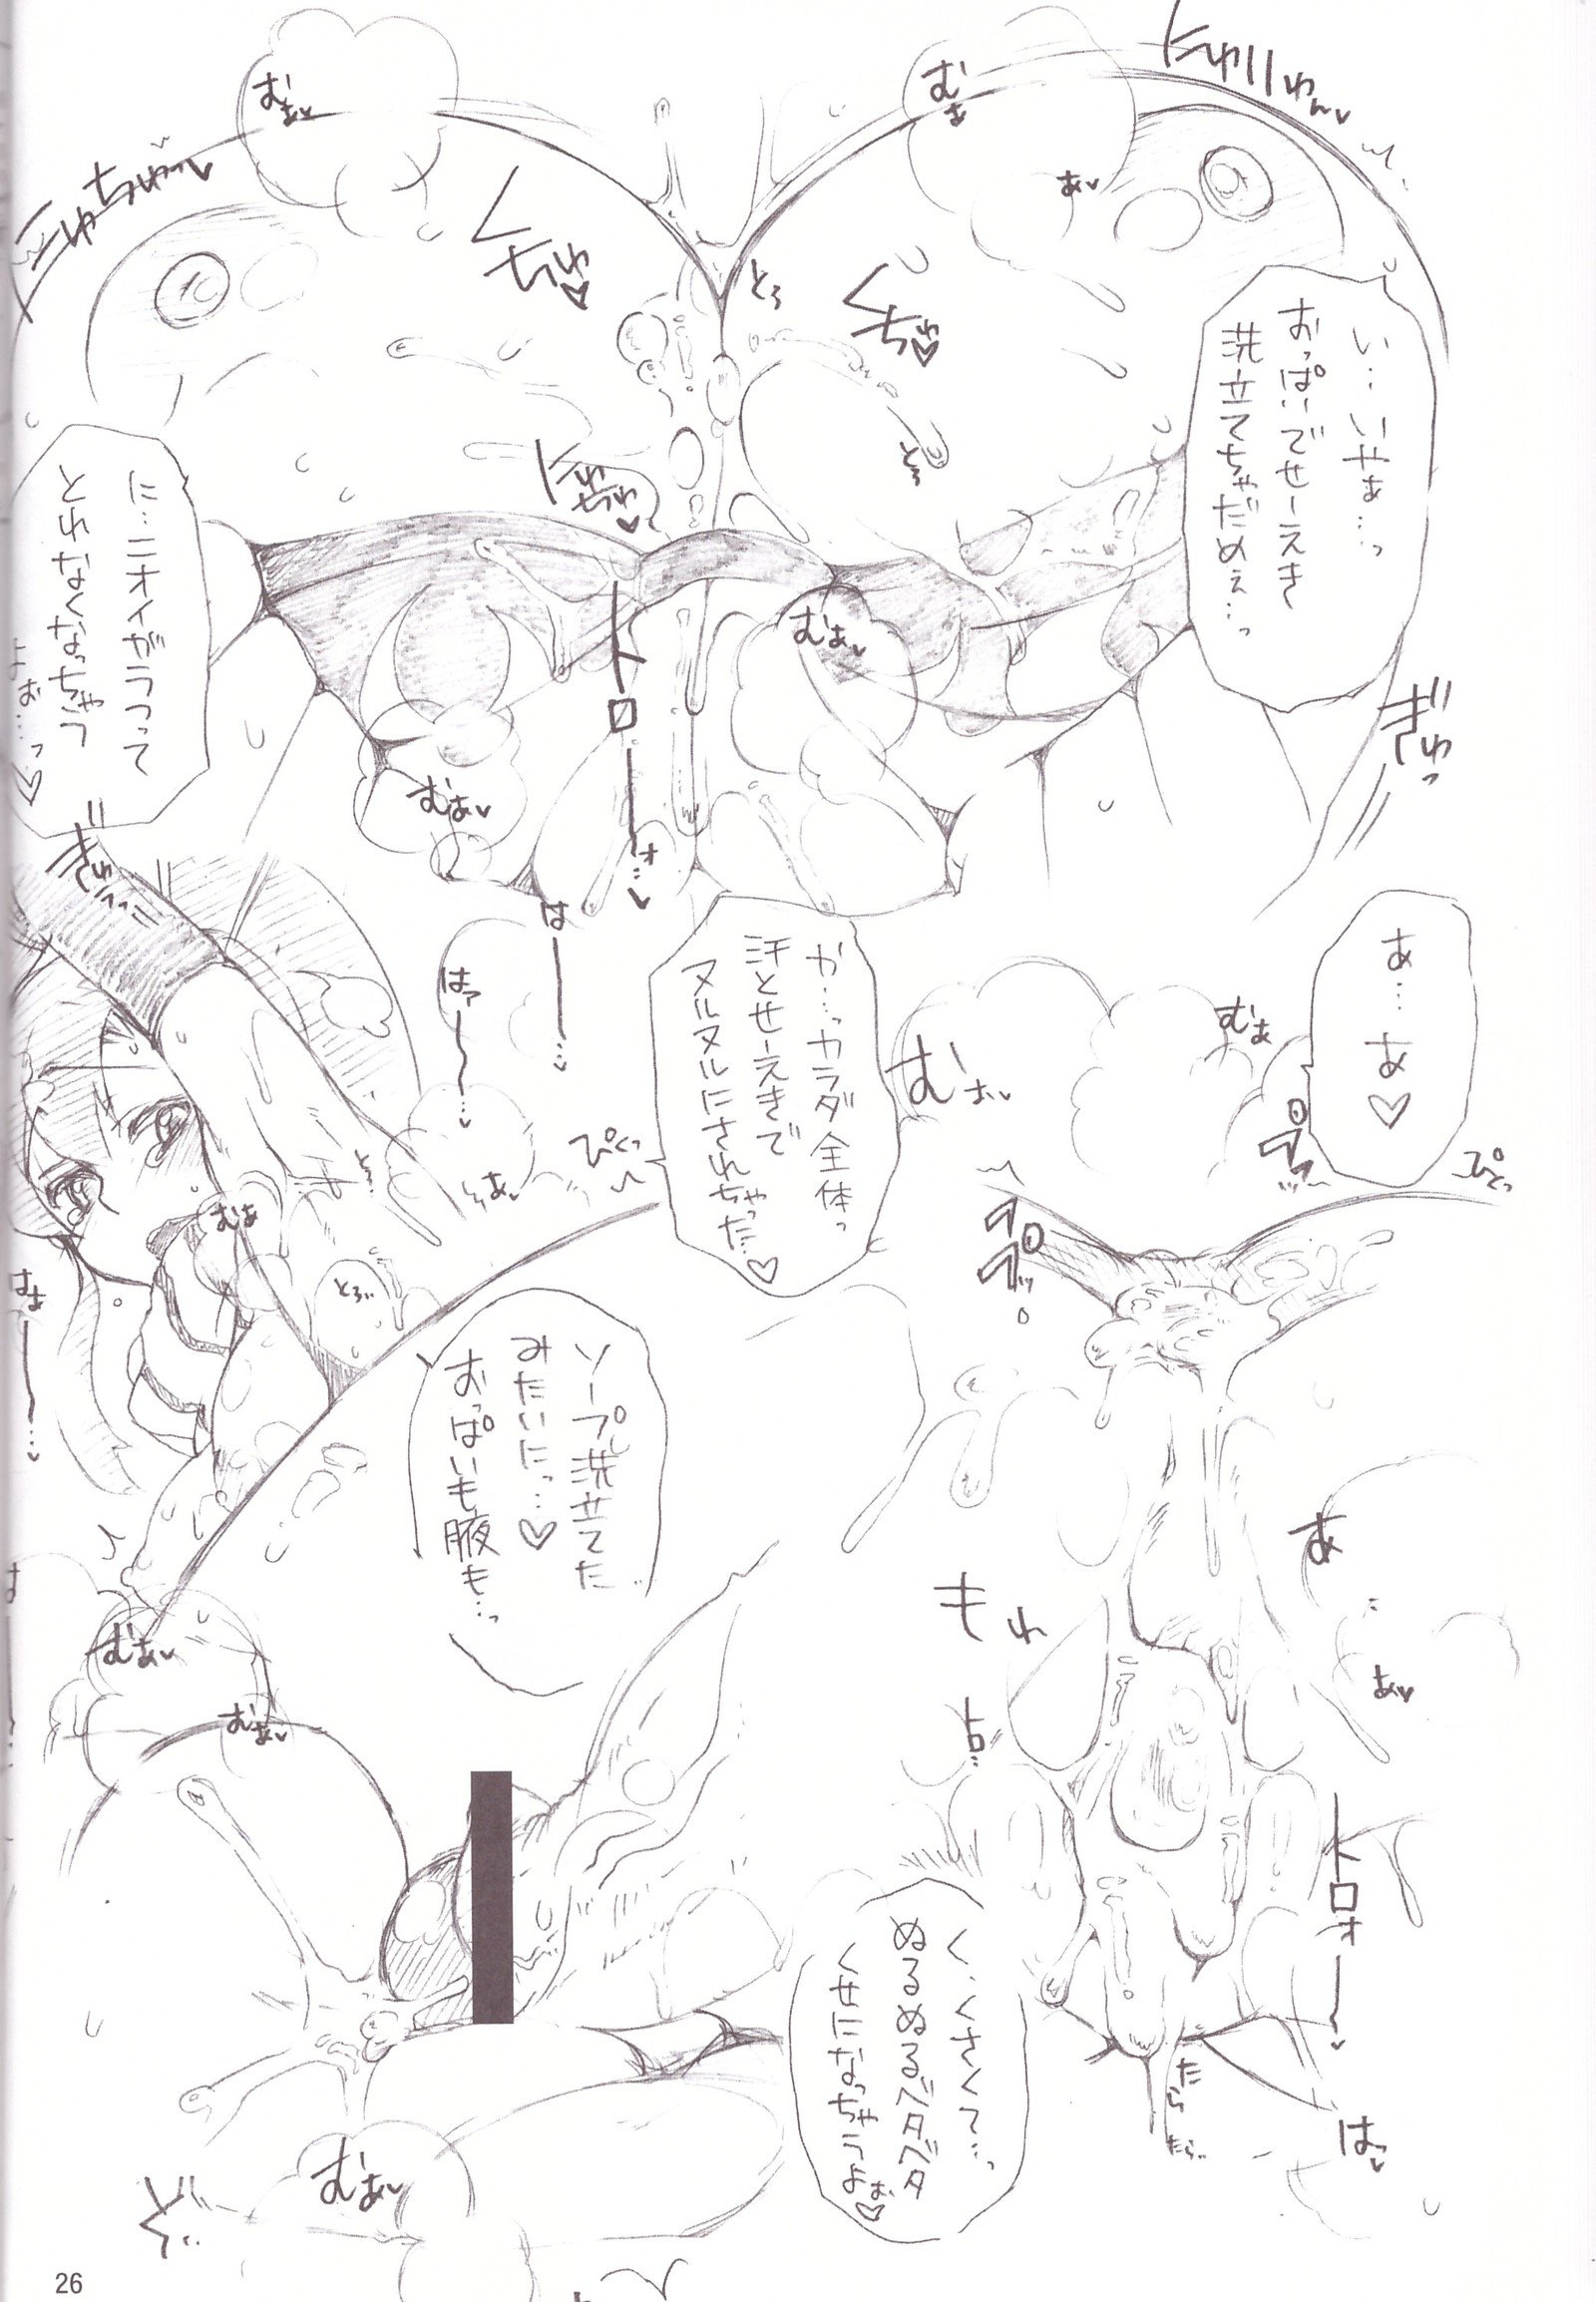 い…いやぁ…っ
おっぱいでせーえき
洗立てちゃだめぇ…っ
ニ…ニオイがうつって
とれなくなっちゃう
よぉ…っ♡
あ…あ♡
か…っカラダ全体っ
汗とせーえきで
ヌルヌルにされちゃった…♡
ソープし洗立てた
みたいにっ…♡
おっぱいも腋も…っ
く…くさくて…っ
ぬるぬるベタベタ
くせになっちゃうよぉ♡
にゅちゅーっ
むぁ
むぁ
ぁ
くちゅ♡
くちゅ♡
とろ
とろ
にゅちゅ
むぁ
トローォ…
むぁ
ぎゅっ
ぎゅっ
はー…
はァ〜…
むぁ
むぁ
ぴくっ
ぴとっ
むぁ
とろ
とろぉ
はぁー…
むぁ
むぁ
もわ
あ
ぁ
トロ…
トロォー
たら
たら…
はっ
むぁ
26